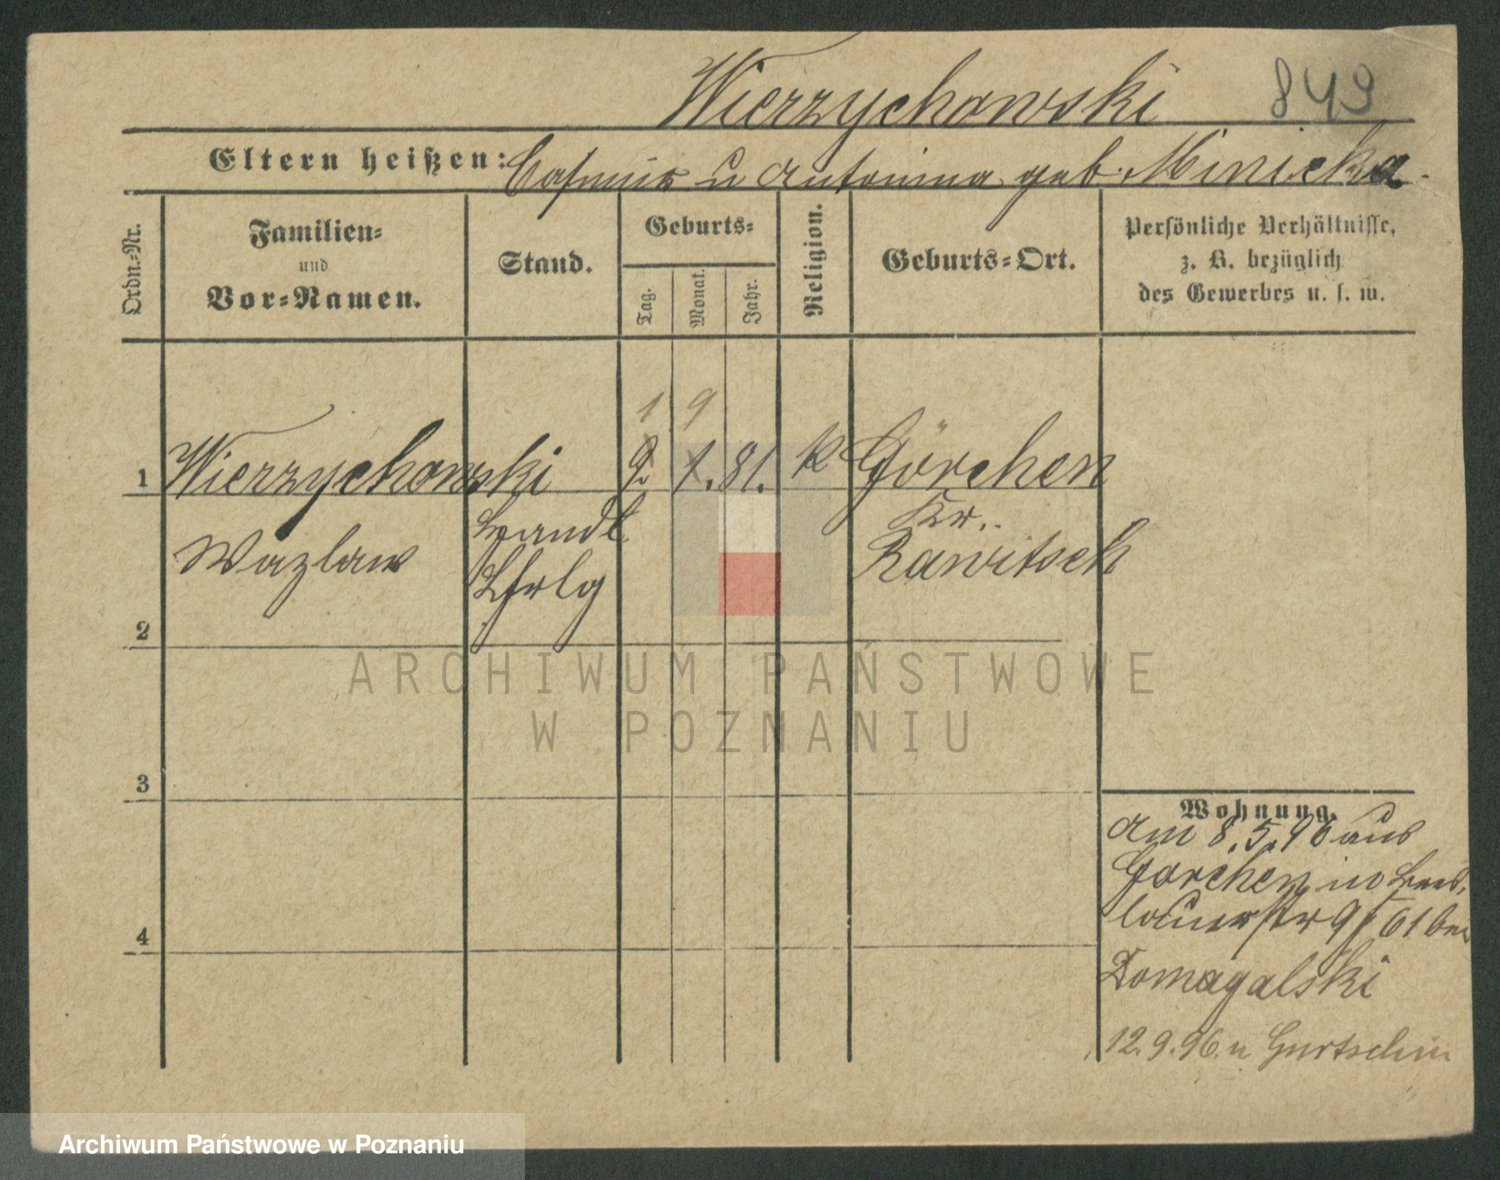 Wierzychowski 843
Eltern heißen: Casimir u Antonina geb. Minicka
Ordn.-Nr.
Familien-
und
Vor-Namen.
Stand.
Geburts-
Tag.
Monat.
Jahr.
Religion.
Geburts-Ort.
Persönliche Verhältnisse,
z. B. bezüglich
des Gewerbes u. s. w.
1 9
1 Wierzychowski 9. 1. 81. k Görchen
Kr.
Wazlaw Rawitsch
2
ARCHIWUM PAŃSTWOWE
W POZNANIU
3
4
Wohnung.
am 8.5.96 aus
Gorchen in Bres-
lauerstr 9
Domagalski
12.9.96. n Gurtschin
Archiwum Państwowe w Poznaniu